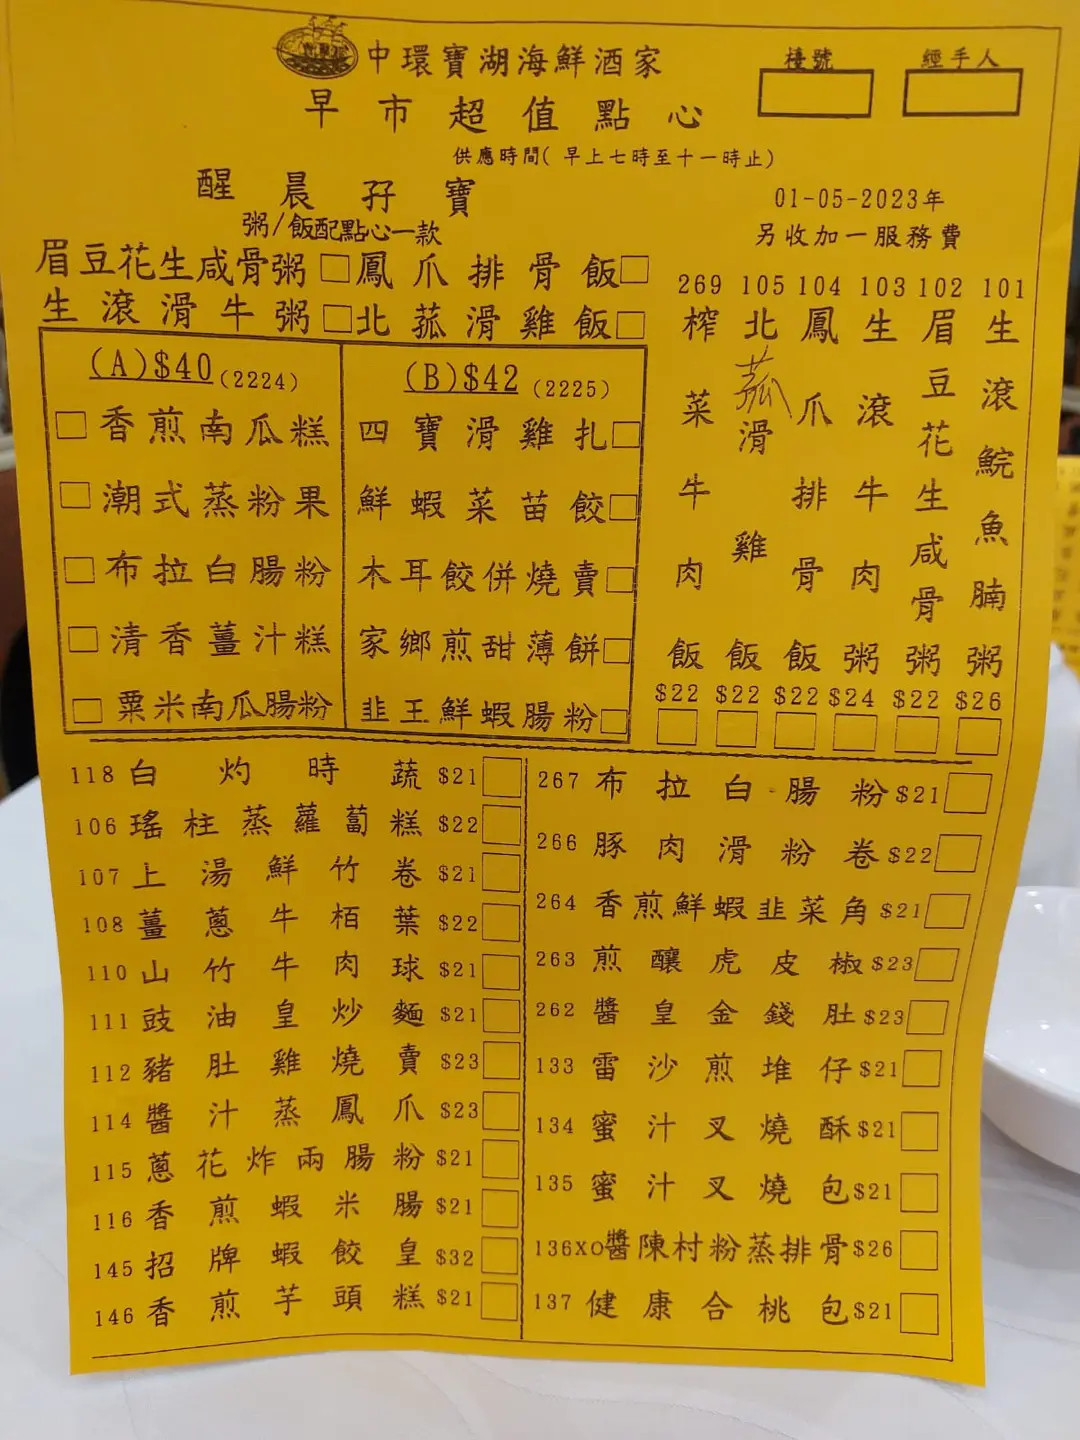 中環寶湖海鮮酒家
檯號
經手人
早市超值點心
供應時間(早上七時至十一時止)
醒晨孖寶
粥/飯配點心一款
01-05-2023年
另收加一服務費
眉豆花生咸骨粥 鳳爪排骨飯
生滾滑牛粥 北菰滑雞飯
(A)$40(2224)
香煎南瓜糕
潮式蒸粉果
布拉白腸粉
清香薑汁糕
粟米南瓜腸粉
(B)$42(2225)
四寶滑雞扎
鮮蝦菜苗餃
木耳餃併燒賣
家鄉煎甜薄餅
韭王鮮蝦腸粉
101 生滾鯇魚腩粥 $26
102 眉豆花生咸骨粥 $22
103 生滾牛肉粥 $24
104 鳳爪排骨飯 $22
105 北菰滑雞飯 $22
269 榨菜牛肉飯 $22
118 白灼時蔬 $21
106 瑤柱蒸蘿蔔糕 $22
107 上湯鮮竹卷 $21
108 薑蔥牛栢葉 $22
110 山竹牛肉球 $21
111 豉油皇炒麵 $21
112 豬肚雞燒賣 $23
114 醬汁蒸鳳爪 $23
115 蔥花炸兩腸粉 $21
116 香煎蝦米腸 $21
145 招牌蝦餃皇 $32
146 香煎芋頭糕 $21
267 布拉白腸粉 $21
266 豚肉滑粉卷 $22
264 香煎鮮蝦韭菜角 $21
263 煎釀虎皮椒 $23
262 醬皇金錢肚 $23
133 雷沙煎堆仔 $21
134 蜜汁叉燒酥 $21
135 蜜汁叉燒包 $21
136 XO醬陳村粉蒸排骨 $26
137 健康合桃包 $21